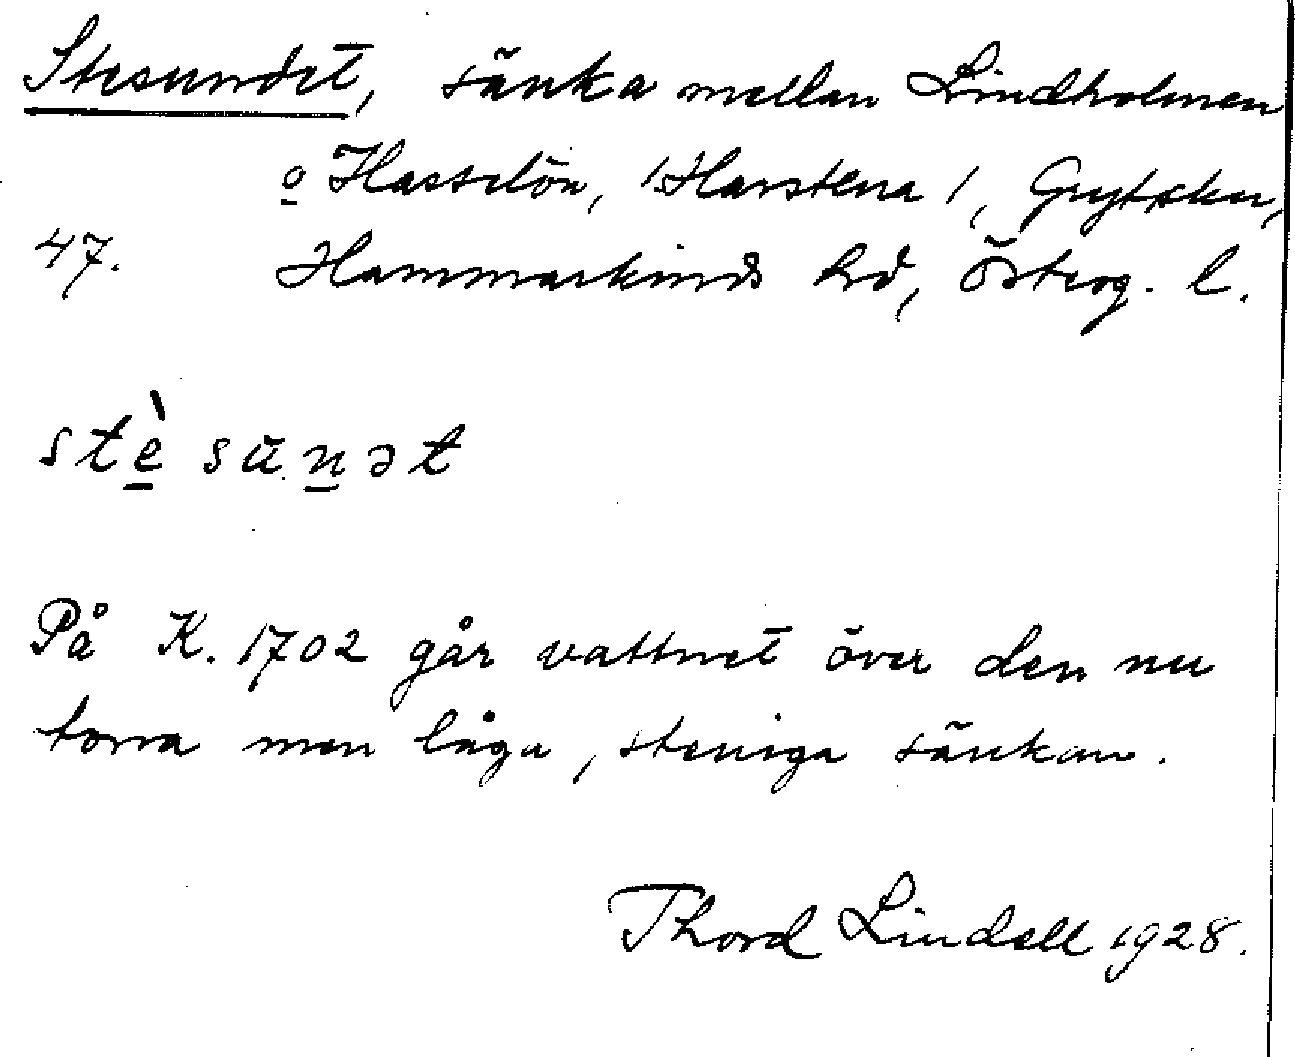 Stesundet, sänka mellan Lindholmen
o Hasselön, /Harstena/, Gryts sku,
47. Hammarkinds hd, Österg. l.
stè̱ sun̠ət
På K. 1702 går vattnet över den nu
torra men låga, steniga sänkan.
Thord Lindell 1928.